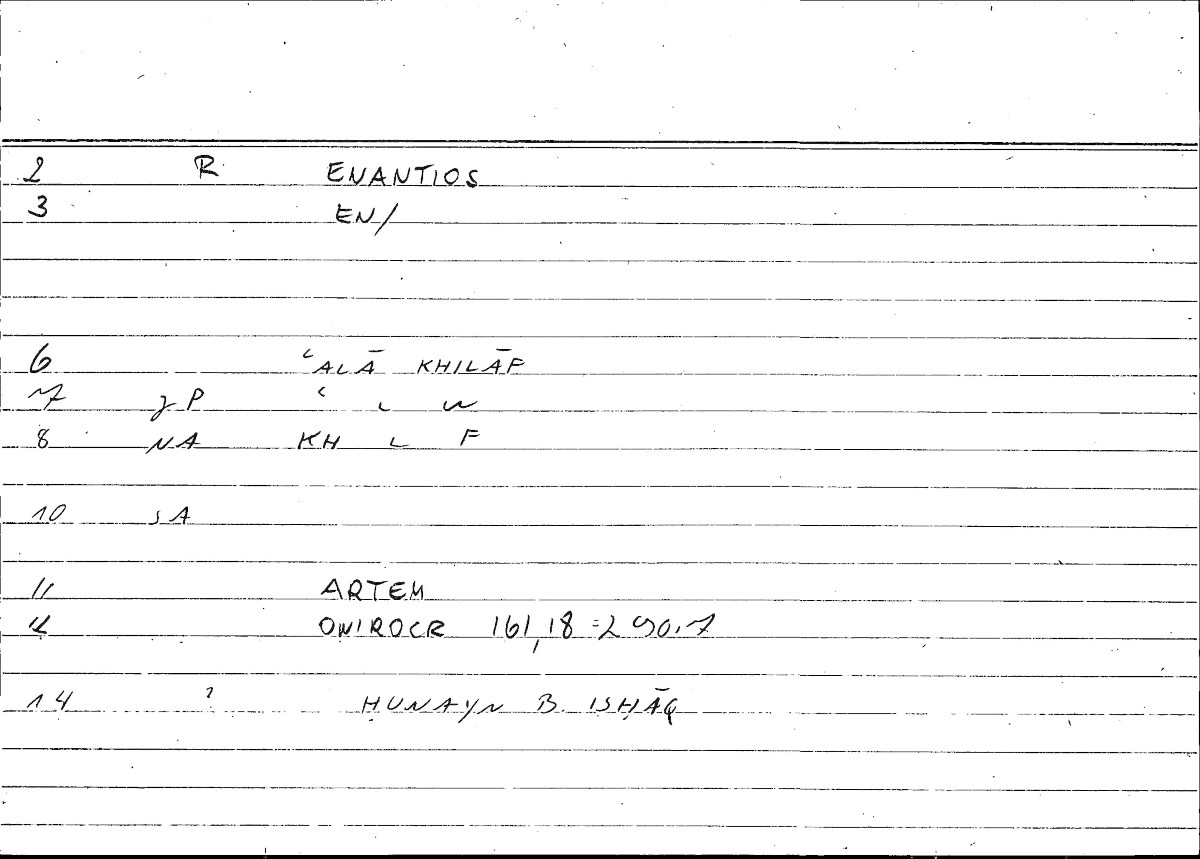 2 R ENANTIOS
3 EN/
6 ʿALĀ KHILĀF
7 JP ʿ L W
8 NA KH L F
10 SA
11 ARTEM
12 ONIROCR 161,18 = 290.7
14 ? ḤUNAYN B. ISḤĀQ